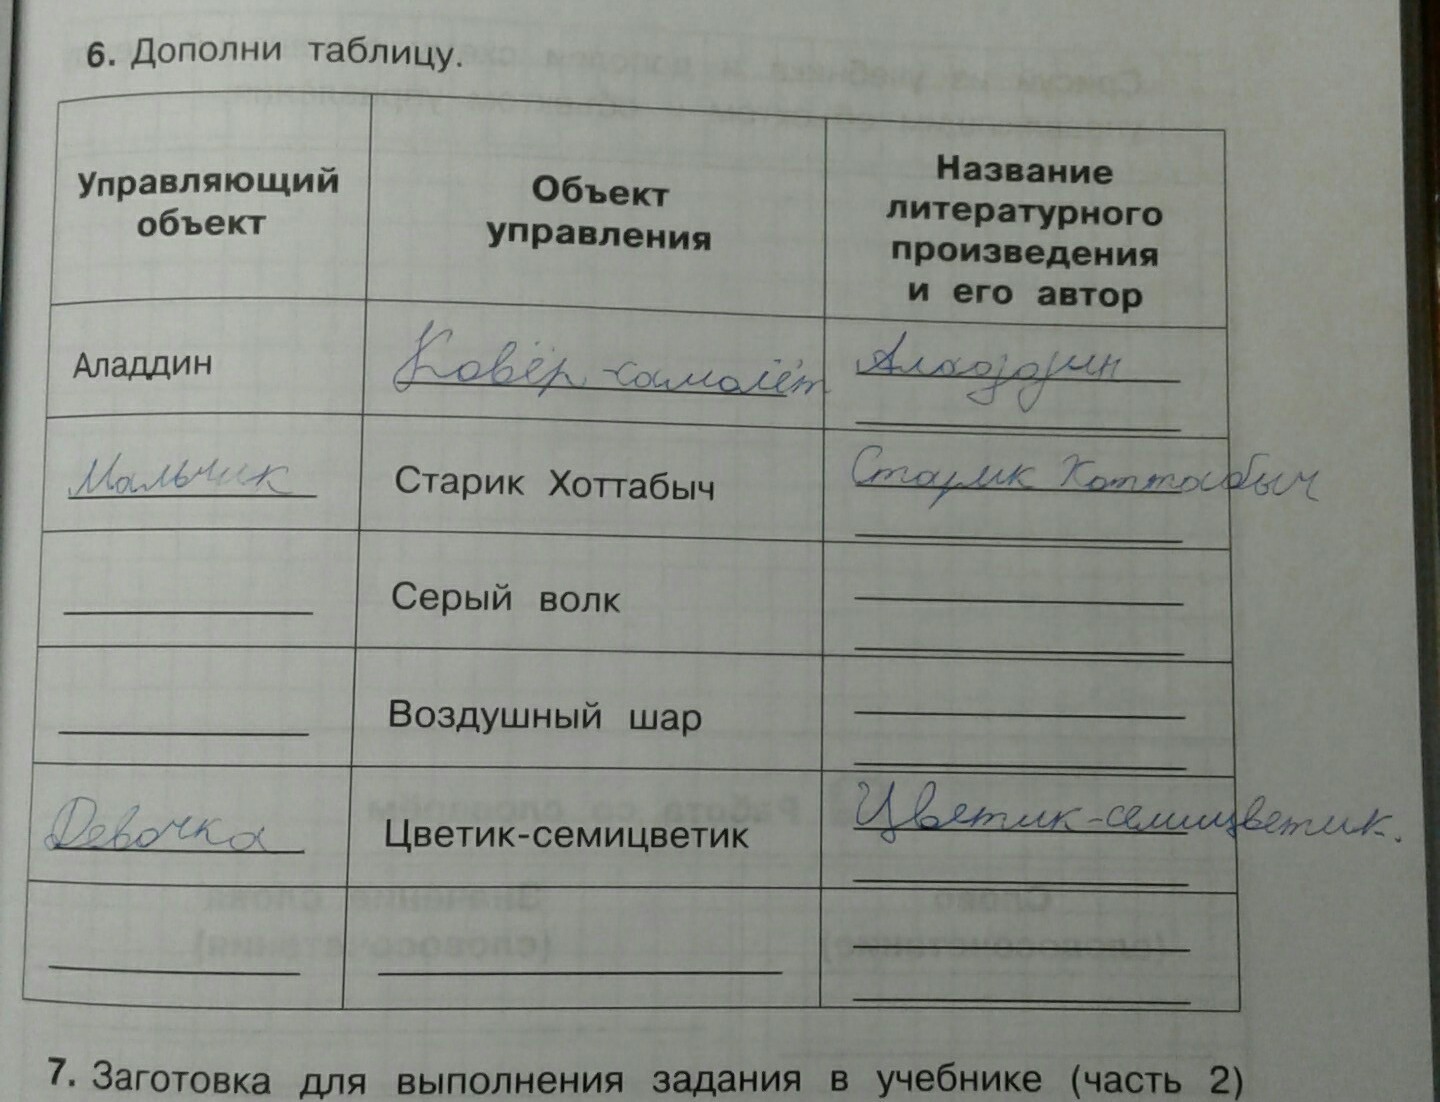 6. Дополни таблицу.
Управляющий
объект
Объект
управления
Название
литературного
произведения
и его автор
Аладдин
Ковёр-самолёт
Аладдин
Мальчик
Старик Хоттабыч
Старик Хоттабыч
Серый волк
Воздушный шар
Девочка
Цветик-семицветик
Цветик-семицветик.
7. Заготовка для выполнения задания в учебнике (часть 2)